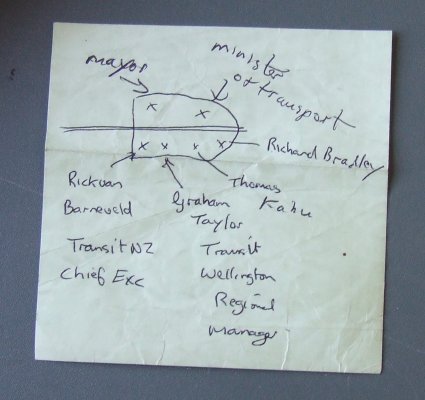 mayor
minister
of transport
Richard Bradley
Thomas
Kahu
Rick van
Barneveld
Transit NZ
Chief Exc
Graham
Taylor
Transit
Wellington
Regional
Manager